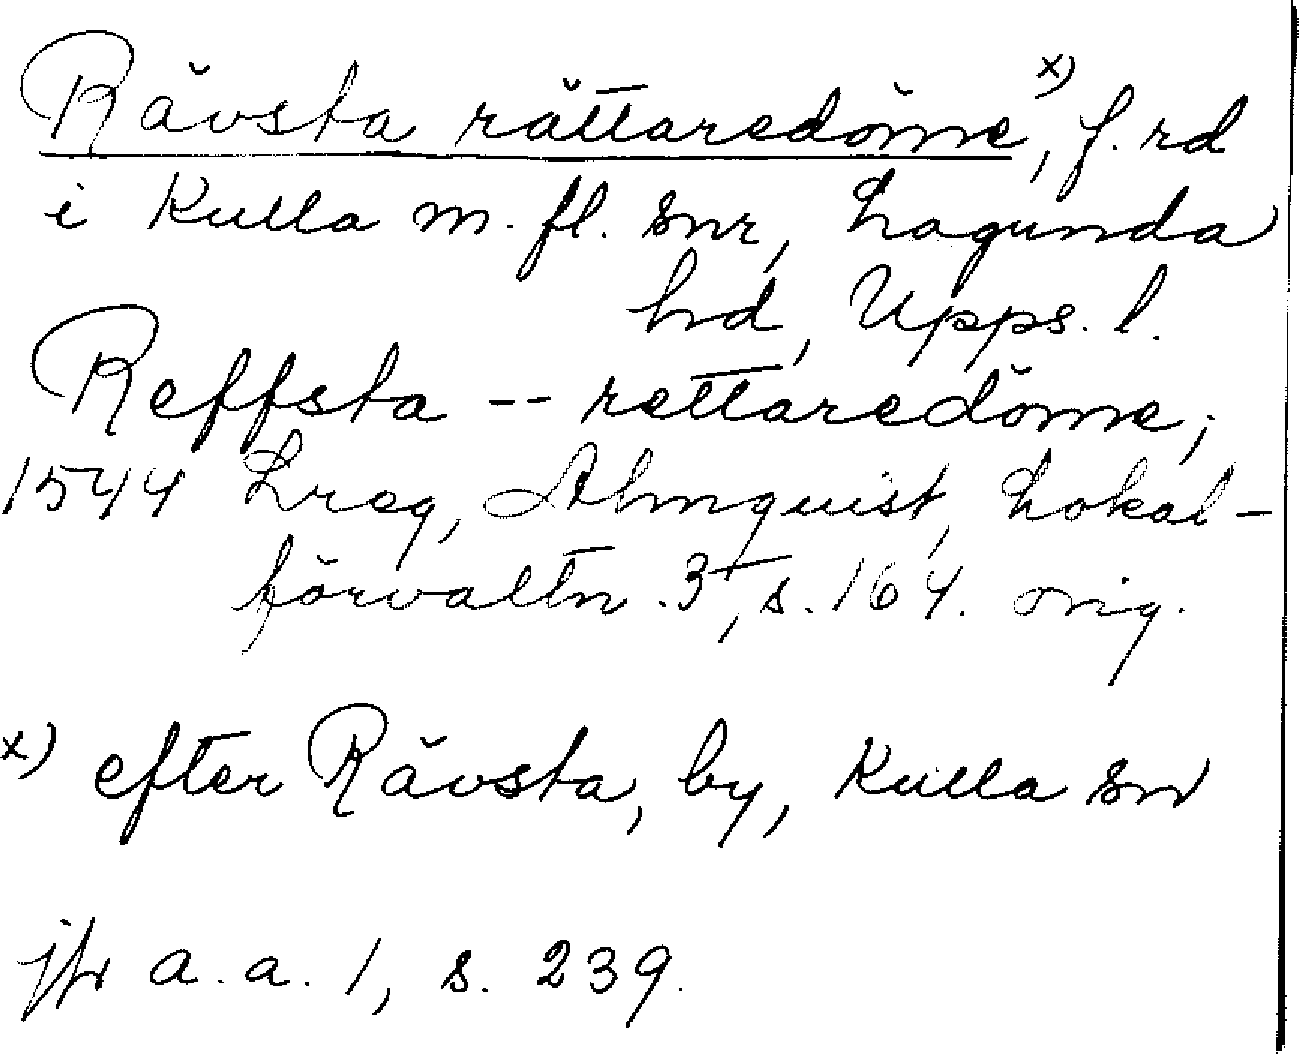 Rävsta rättaredöme x), f. rd
i Kulla m. fl. snr, Lagunda
hd, Upps. l.
Reffsta -- rettaredöme;
1544 Lreg, Almquist, Lokal-
förvaltn. 3, s. 164. orig.
x) efter Rävsta, by, Kulla sn
jfr a. a. 1, s. 239.